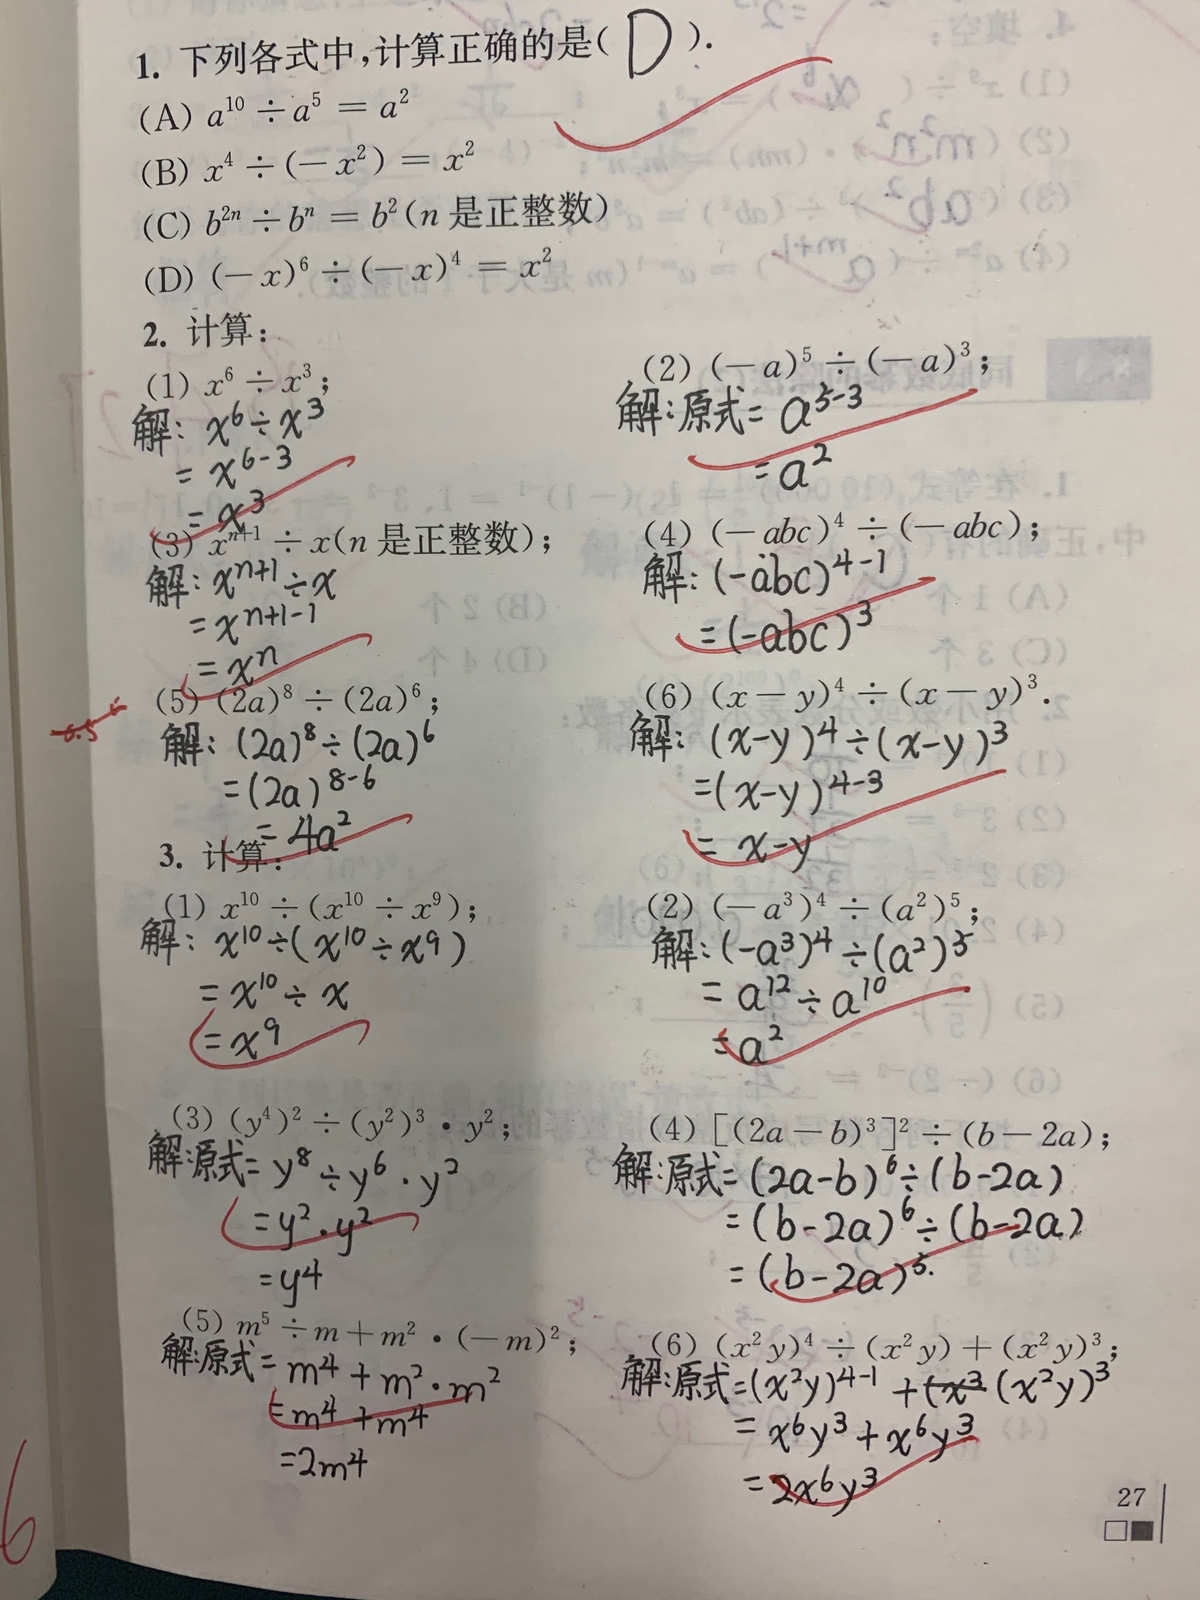 1. 下列各式中,计算正确的是( D ).
(A) a¹⁰ ÷ a⁵ = a²
(B) x⁴ ÷ (− x²) = x²
(C) b²ⁿ ÷ bⁿ = b² (n 是正整数)
(D) (− x)⁶ ÷ (− x)⁴ = x²
2. 计算:
(1) x⁶ ÷ x³;
解: x⁶ ÷ x³
= x⁶⁻³
= x³
(2) (− a)⁵ ÷ (− a)³;
解:原式= a⁵⁻³
= a²
(3) xⁿ⁺¹ ÷ x(n 是正整数);
解: xⁿ⁺¹ ÷ x
= xⁿ⁺¹⁻¹
= xⁿ
(4) (− abc)⁴ ÷ (− abc);
解: (-abc)⁴⁻¹
= (-abc)³
(5) (2a)⁸ ÷ (2a)⁶;
解: (2a)⁸ ÷ (2a)⁶
= (2a)⁸⁻⁶
= 4a²
(6) (x − y)⁴ ÷ (x − y)³.
解: (x-y)⁴ ÷ (x-y)³
= (x-y)⁴⁻³
= x-y
3. 计算:
(1) x¹⁰ ÷ (x¹⁰ ÷ x⁹);
解: x¹⁰ ÷ (x¹⁰ ÷ x⁹)
= x¹⁰ ÷ x
= x⁹
(2) (− a³)⁴ ÷ (a²)⁵;
解: (-a³)⁴ ÷ (a²)⁵
= a¹² ÷ a¹⁰
= a²
(3) (y⁴)² ÷ (y²)³ · y²;
解:原式= y⁸ ÷ y⁶ · y²
= y² · y²
= y⁴
(4) [(2a − b)³]² ÷ (b − 2a);
解:原式= (2a-b)⁶ ÷ (b-2a)
= (b-2a)⁶ ÷ (b-2a)
= (b-2a)⁵.
(5) m⁵ ÷ m + m² · (− m)²;
解:原式= m⁴ + m² · m²
= m⁴ + m⁴
= 2m⁴
(6) (x² y)⁴ ÷ (x² y) + (x² y)³;
解:原式= (x²y)⁴⁻¹ + (x²y)³
= x⁶y³ + x⁶y³
= 2x⁶y³
27
6